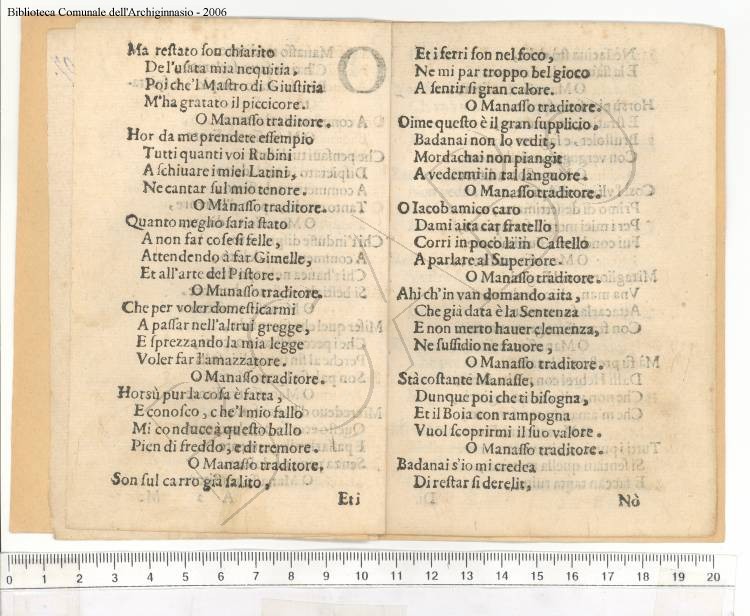 Biblioteca Comunale dell'Archiginnasio - 2006
Ma reſtato ſon chiarito
Del'uſata mia nequitia,
Poi che'l Maſtro di Giuſtitia
M'ha gratato il piccicore.
O Manaſſo traditore.
Hor da me prendete eſſempio
Tutti quanti voi Rabini
A ſchiuare i miei Latini,
Ne cantar ſul mio tenore.
O Manaſſo traditore.
Quanto meglio ſaria ſtato
A non far coſe ſi felle,
Attendendo à far Gimelle,
Et all'arte del Piſtore.
O Manaſſo traditore.
Che per voler domeſticarmi
A paſſar nell'altrui gregge,
E ſprezzando la mia legge
Voler far l'amazzatore.
O Manaſſo traditore.
Horsù pur la coſa è fatta,
E conoſco, che'l mio fallo
Mi conduce à queſto ballo
Pien di freddo, e di tremore.
O Manaſſo traditore.
Son ſul carro già ſalito,
Et i
Et i ferri ſon nel foco,
Ne mi par troppo bel gioco
A ſentir ſi gran calore.
O Manaſſo traditore.
Oime queſto è il gran ſupplicio.
Badanai non lo vedit,
Mordachai non piangit
A vedermi in tal languore.
O Manaſſo traditore.
O Iacob amico caro
Dami aita car fratello
Corri in poco là in Caſtello
A parlare al Superiore.
O Manaſſo traditore.
Ahi ch'in van domando aita,
Che già data è la Sentenza
E non merto hauer clemenza,
Ne ſuſſidio ne fauore,
O Manaſſo traditore.
Stà coſtante Manaſſe,
Dunque poi che ti biſogna,
Et il Boia con rampogna
Vuol ſcoprirmi il ſuo valore.
O Manaſſo traditore.
Badanai s'io mi credea
Di reſtar ſi derelit,
Nò
0 1 2 3 4 5 6 7 8 9 10 11 12 13 14 15 16 17 18 19 20